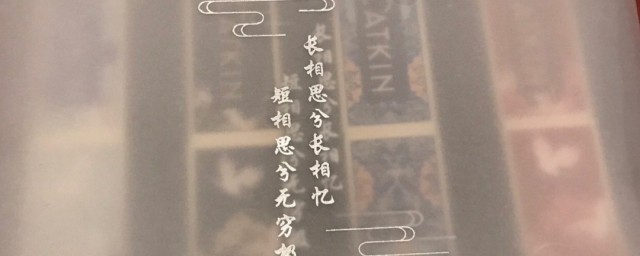 长相思兮长相忆
短相思兮无穷极
CATKIN